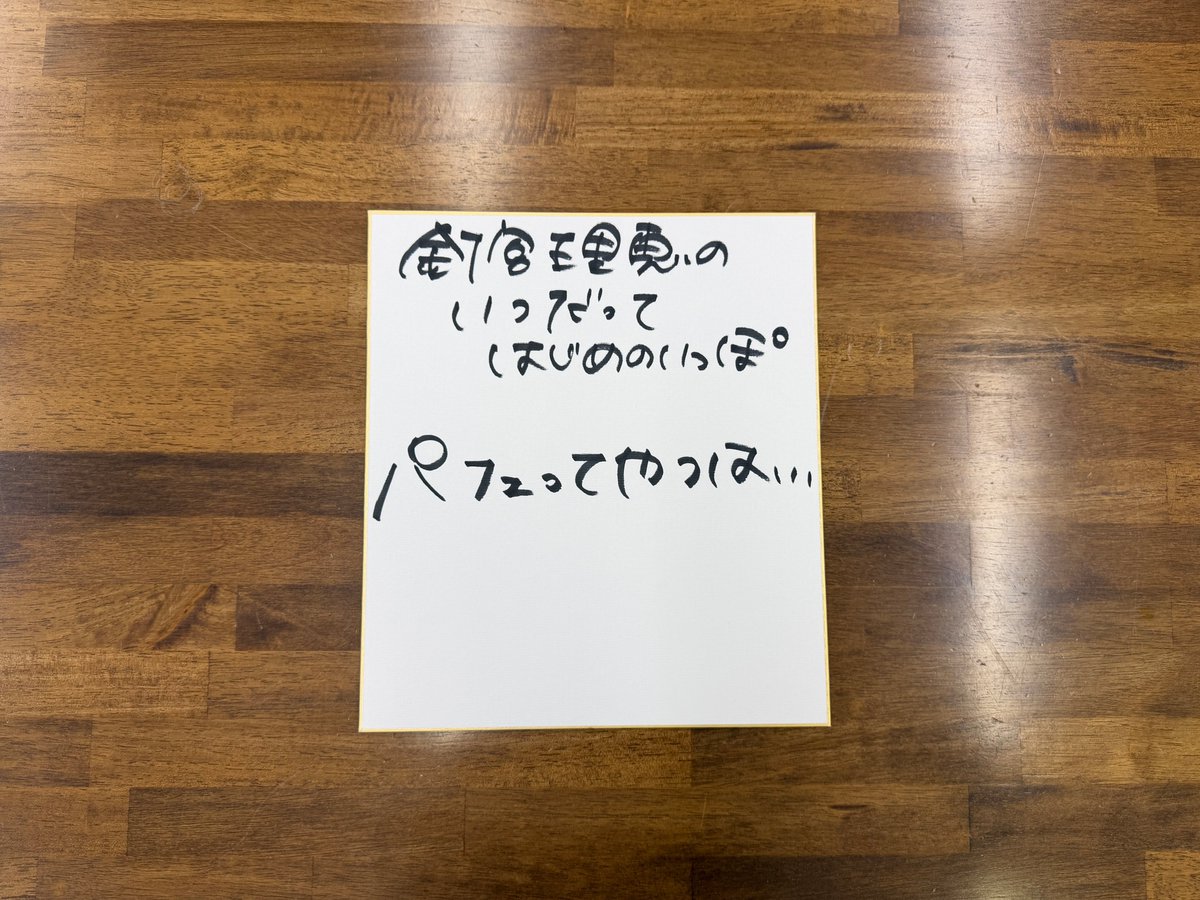 釘宮理恵の
いつだって
はじめのいっぽ
パフェってやつは...